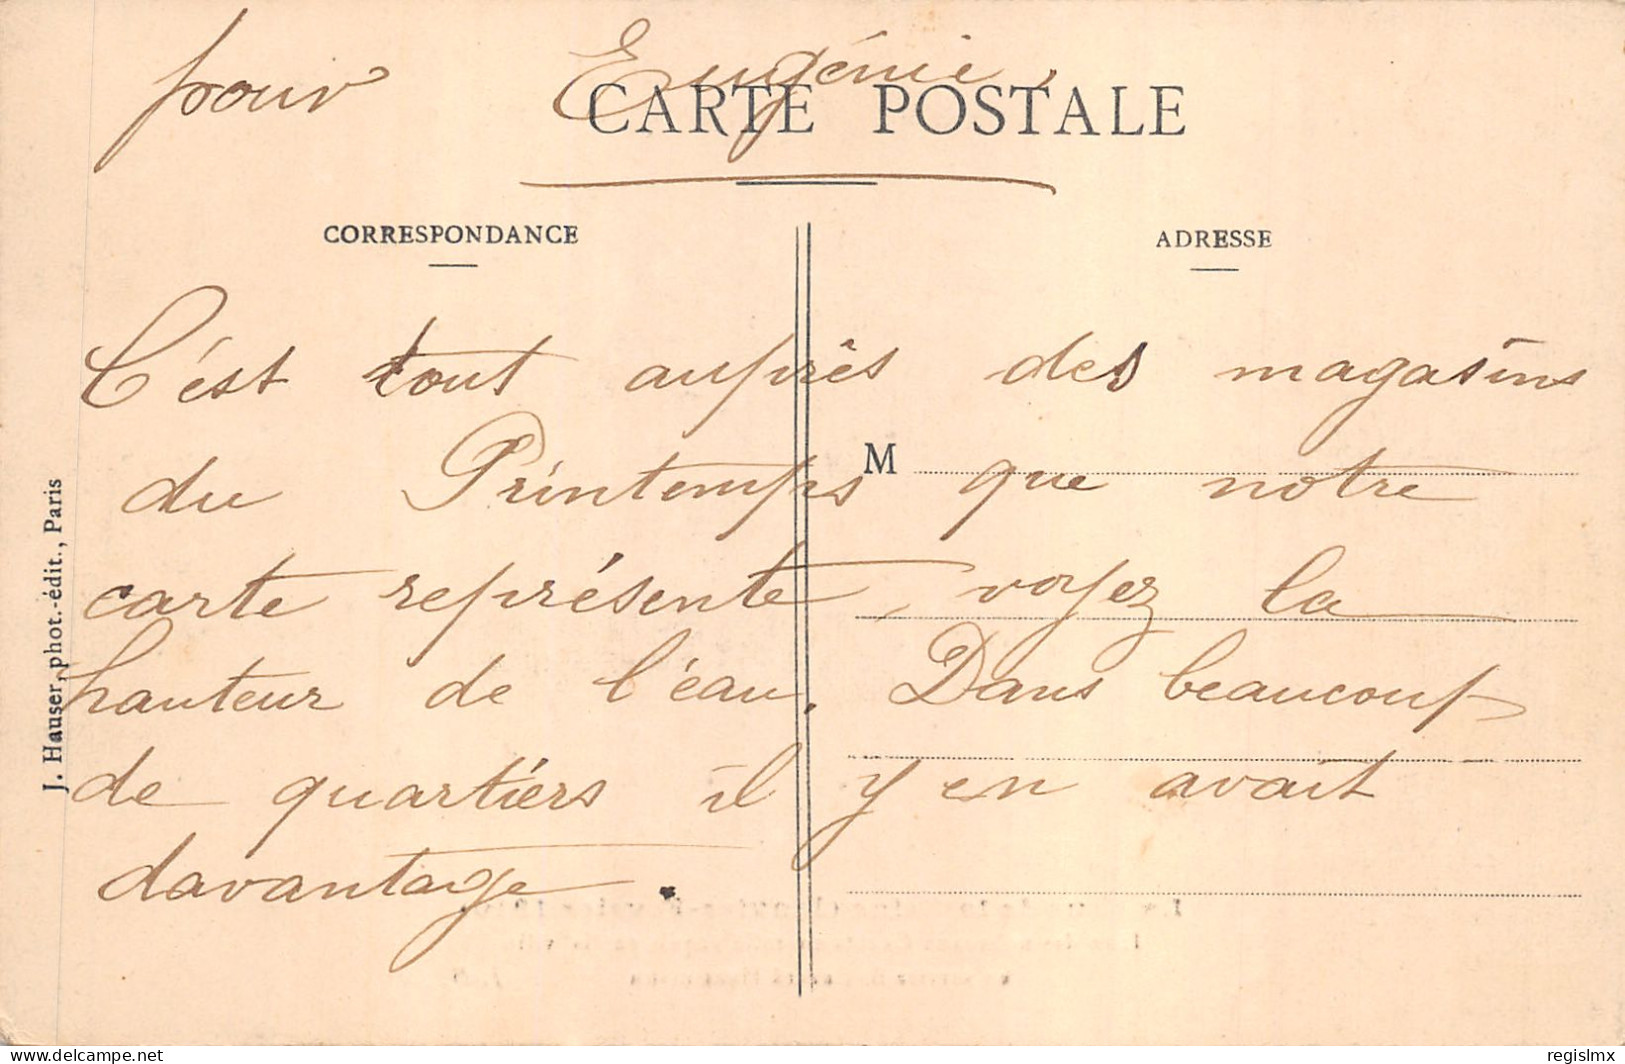 pour Eugénie
CARTE POSTALE
CORRESPONDANCE
ADRESSE
C'est tout auprès des magasins
du Printemps que notre
M
carte représente, voyez la
hauteur de l'éau. Dans beaucoup
de quartiers il y en avait
davantage.
J. Hauser, phot.-édit., Paris
https://www.delcampe.net
regislmx